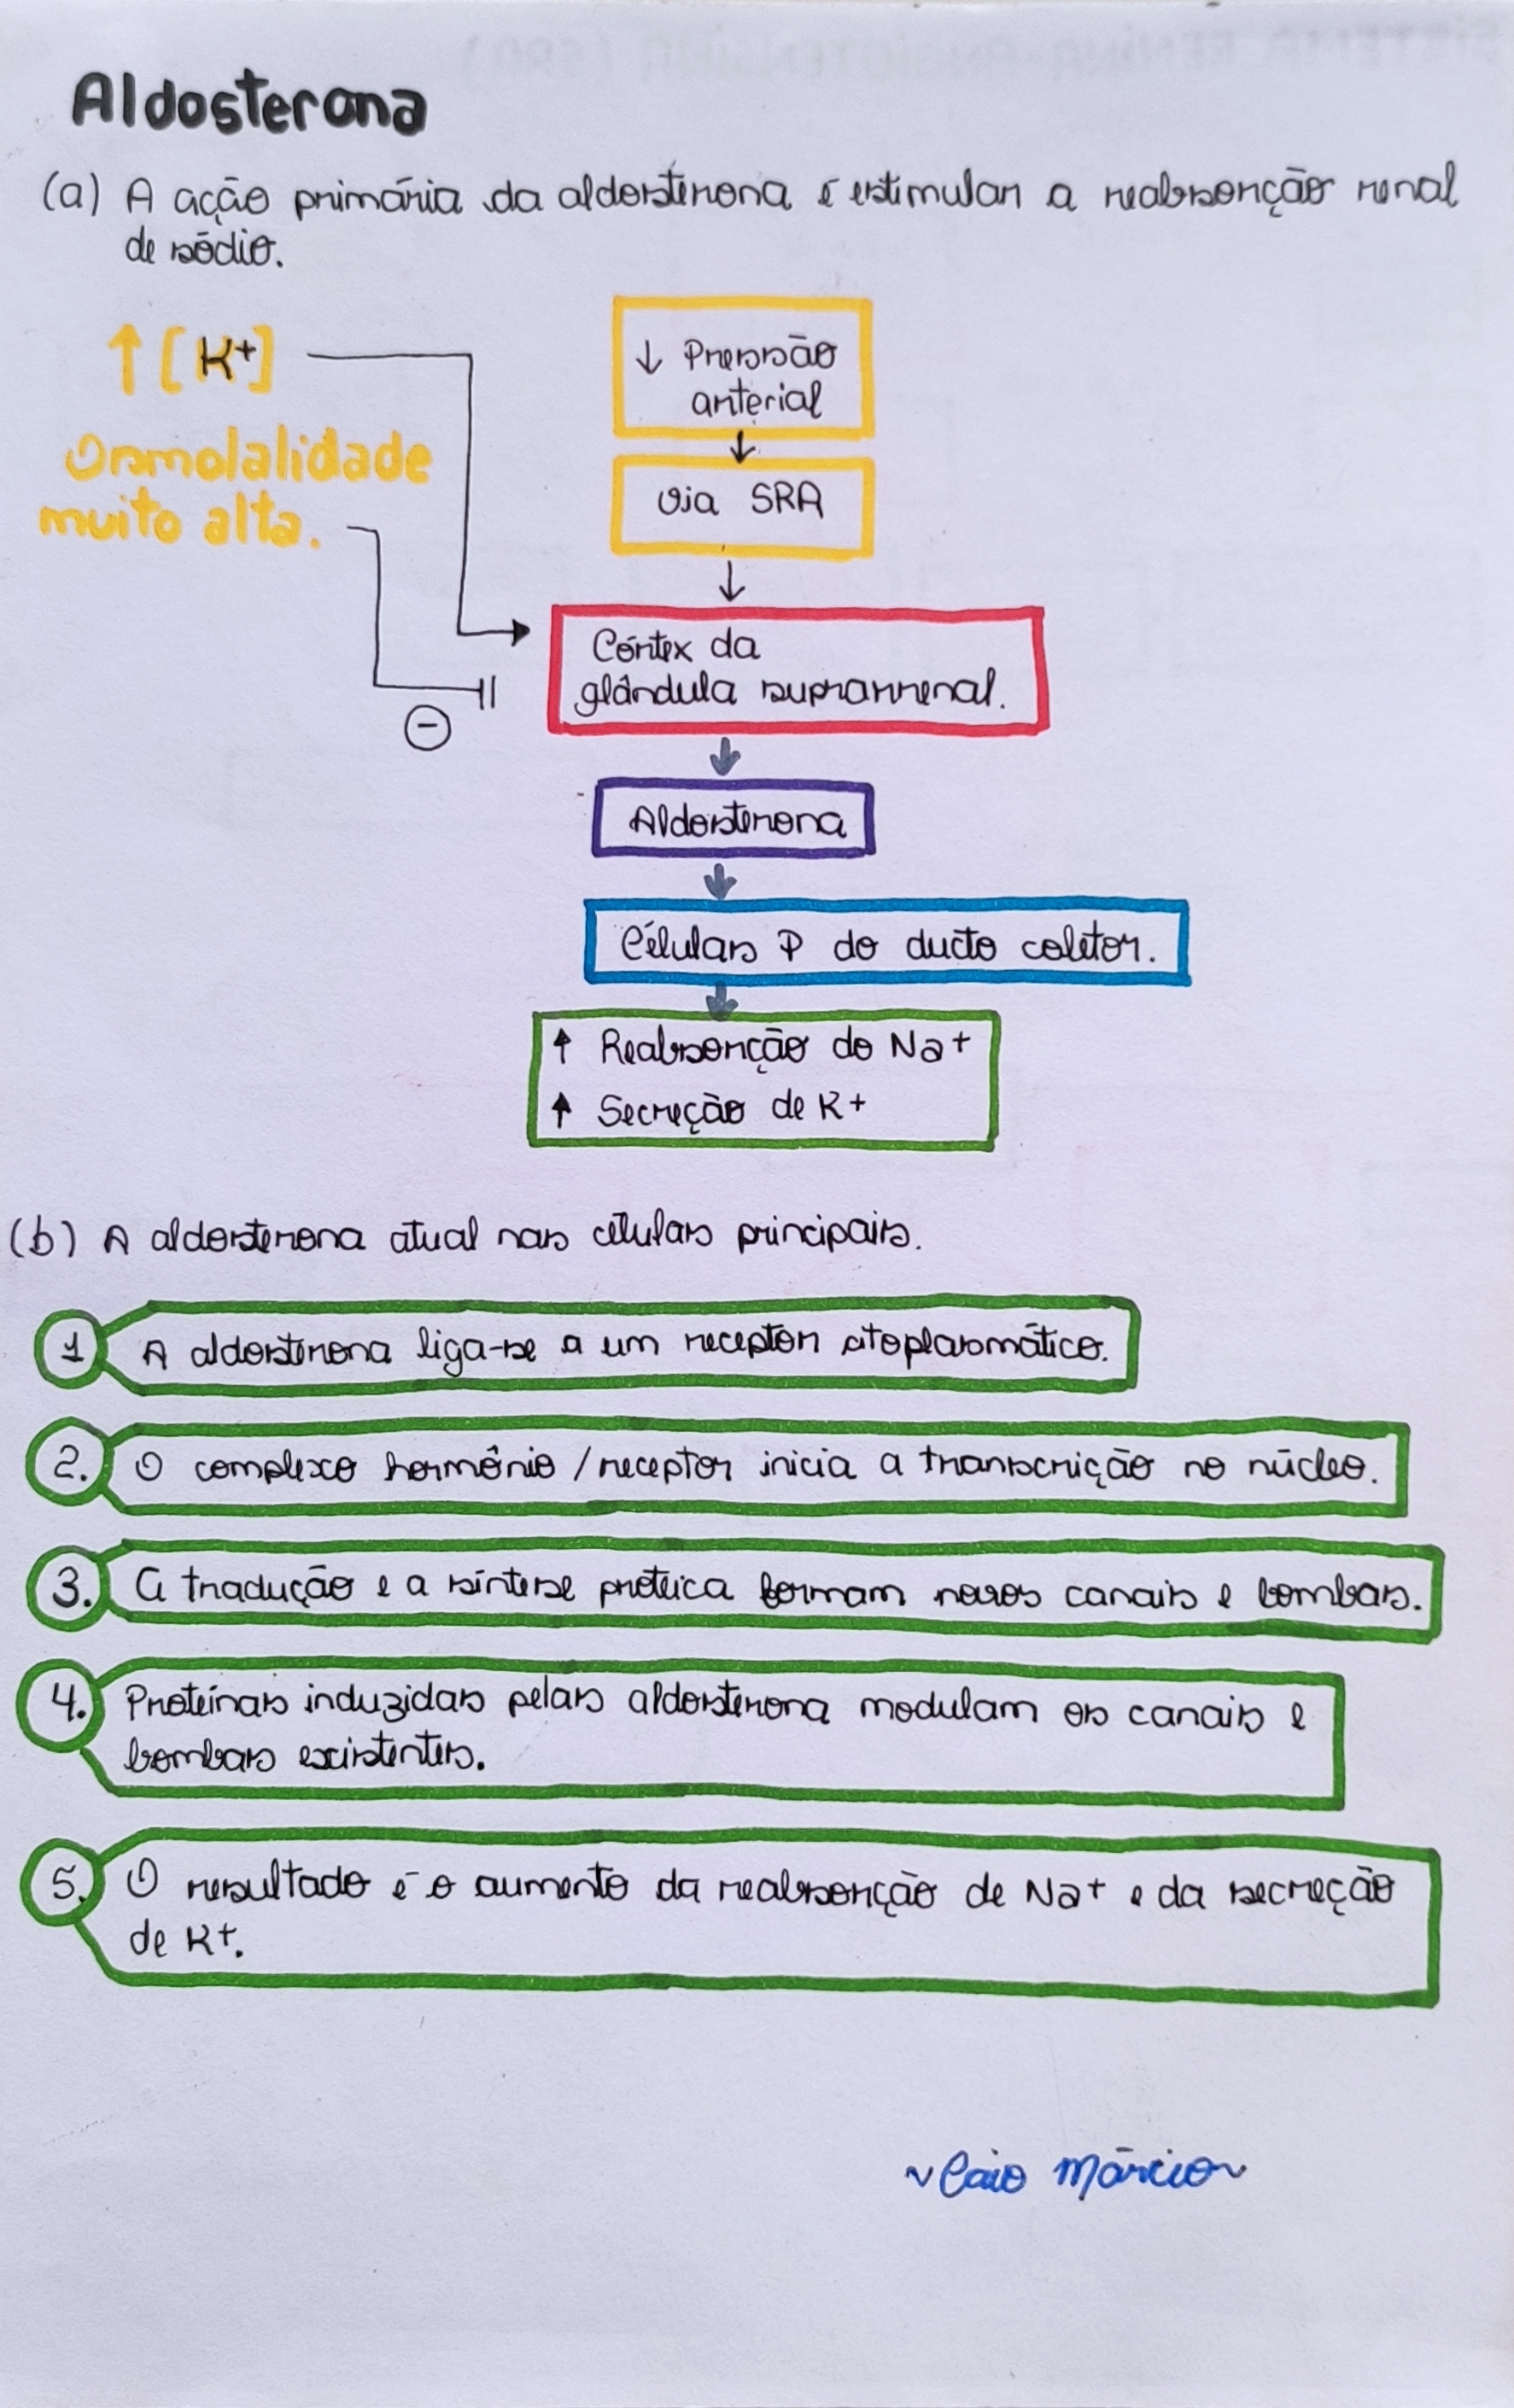 Aldosterona
(a) A ação primária da aldosterona é estimular a reabsorção renal
de sódio.
↑ [K+]
Osmolalidade
muito alta.
↓ Pressão
arterial
↓
Via SRA
↓
Córtex da
glândula suprarrenal.
−
Aldosterona
Células P do ducto coletor.
↑ Reabsorção do Na+
↑ Secreção de K+
(b) A aldosterona atual nas células principais.
1 A aldosterona liga-se a um receptor citoplasmático.
2. O complexo hormônio/receptor inicia a transcrição no núcleo.
3. A tradução e a síntese protéica formam novos canais e bombas.
4. Proteínas induzidas pelas aldosterona modulam os canais e
bombas existentes.
5. O resultado é o aumento da reabsorção de Na+ e da secreção
de K+.
~Caio Márcio~